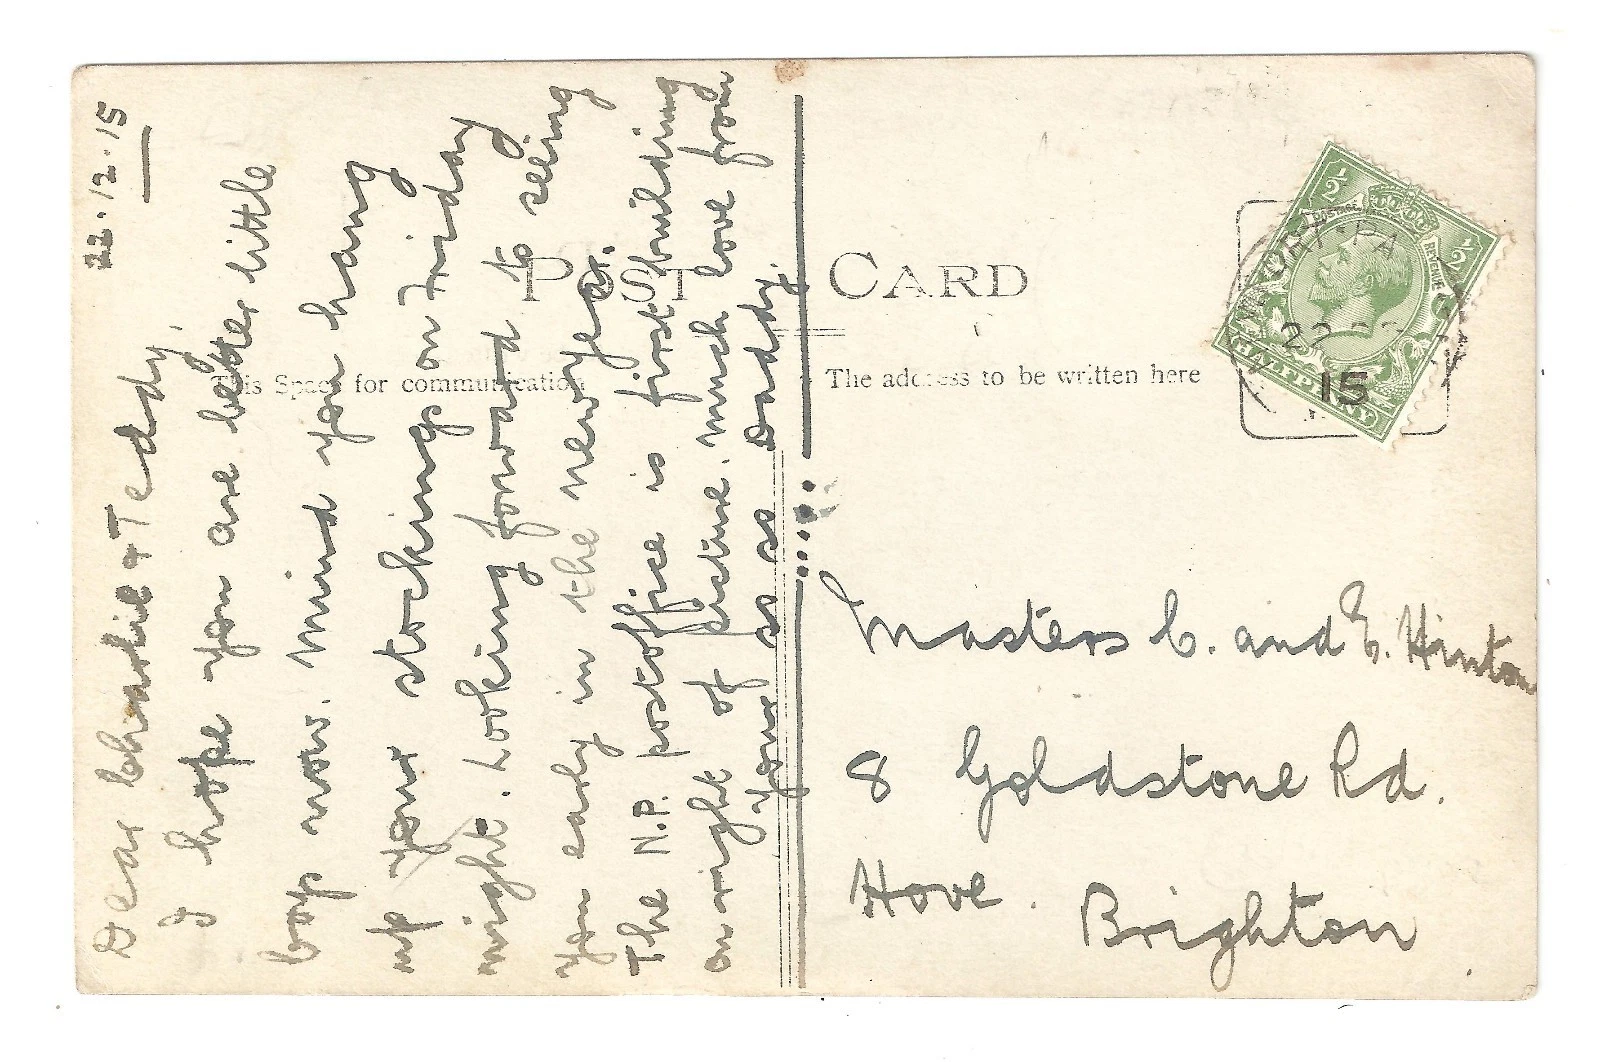 22.12.15
Dear Charlie & Teddy,
I hope you are better little
boy now. Mind you hang
up your stockings on Friday
night. Looking forward to seeing
you early in the new year.
The N.P. postoffice is first building
on right of picture. Much love from
Your Daddy.
POST CARD
This Space for communication
The address to be written here
Masters C. and E. Hinton
8 Goldstone Rd.
Hove.
Brighton
½ ½
POSTAGE
REVENUE
HALFPENNY
22
15